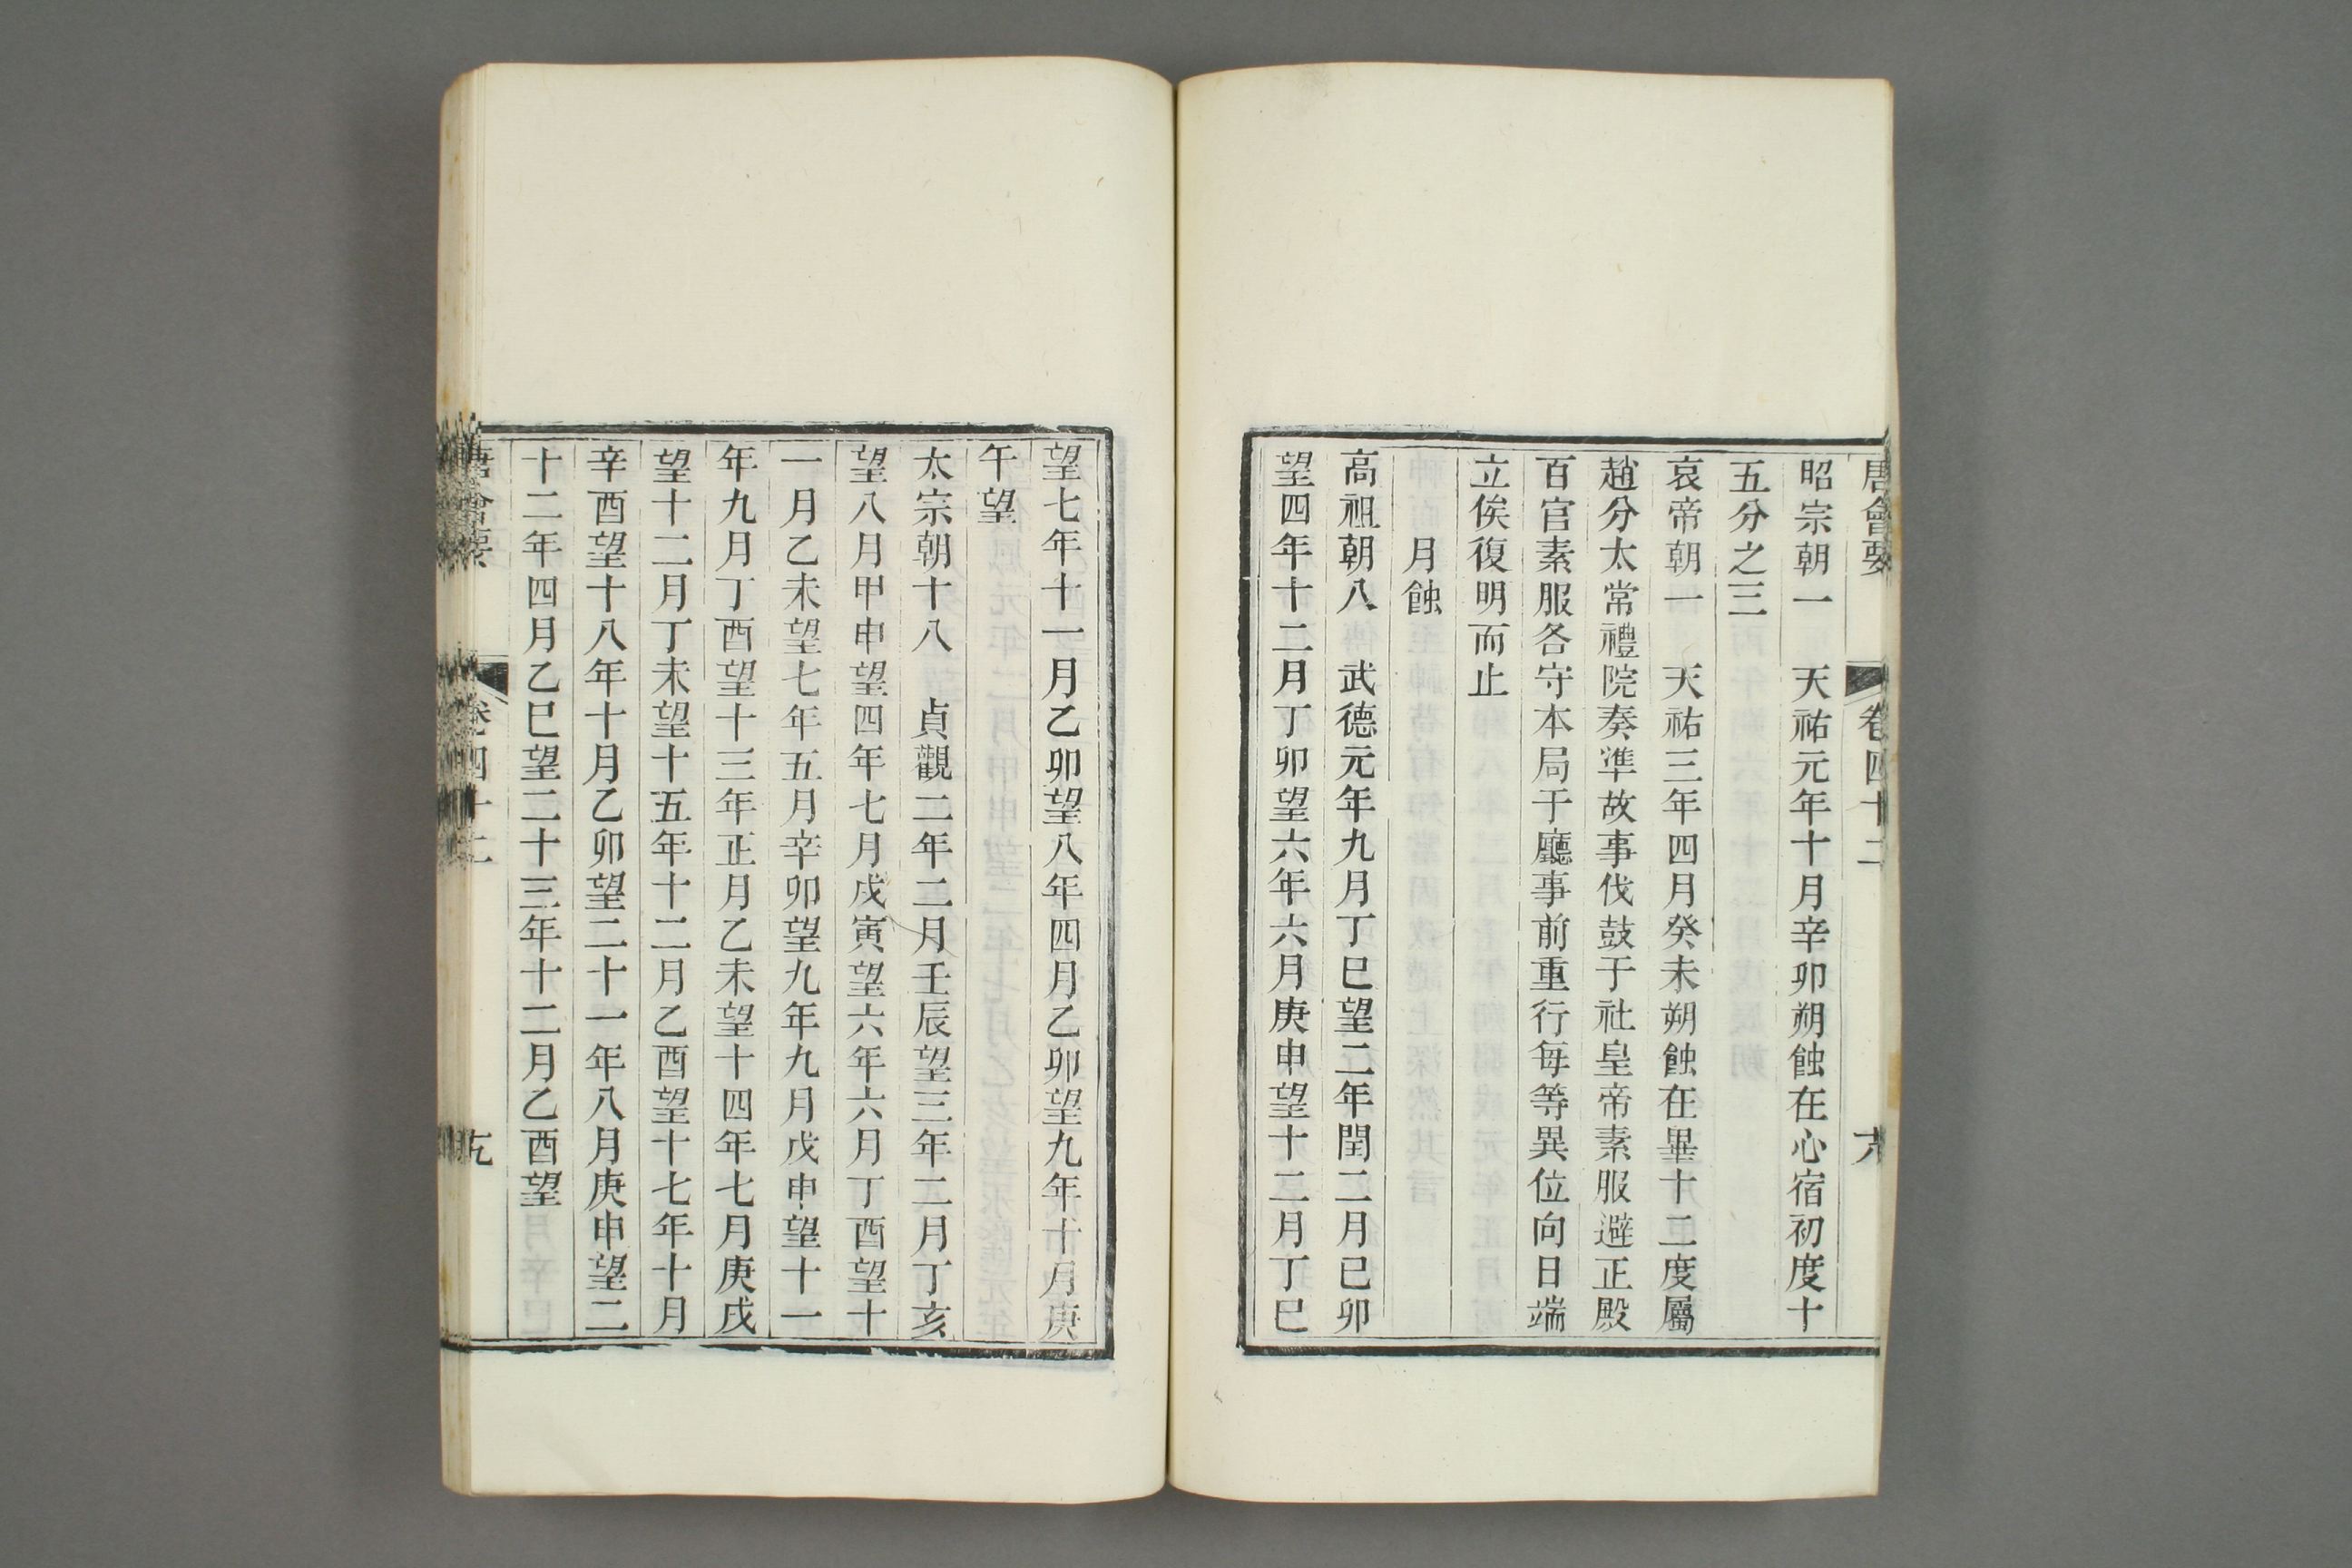 唐會要 卷四十二 六
昭宗朝一 天祐元年十月辛卯朔蝕在心宿初度十
五分之三
哀帝朝一 天祐三年四月癸未朔蝕在畢十二度屬
趙分太常禮院奏準故事伐鼓于社皇帝素服避正殿
百官素服各守本局于廳事前重行每等異位向日端
立俟復明而止
月蝕
高祖朝八 武德元年九月丁巳望二年閏二月己卯
望四年十二月丁卯望六年六月庚申望十二月丁巳
望七年十一月乙卯望八年四月乙卯望九年十月庚
午望
太宗朝十八 貞觀二年二月壬辰望三年二月丁亥
望八月甲申望四年七月戊寅望六年六月丁酉望十
一月乙未望七年五月辛卯望九年九月戊申望十一
年九月丁酉望十三年正月乙未望十四年七月庚戌
望十二月丁未望十五年十二月乙酉望十七年十月
辛酉望十八年十月乙卯望二十一年八月庚申望二
十二年四月乙巳望二十三年十二月乙酉望
唐會要 卷四十二